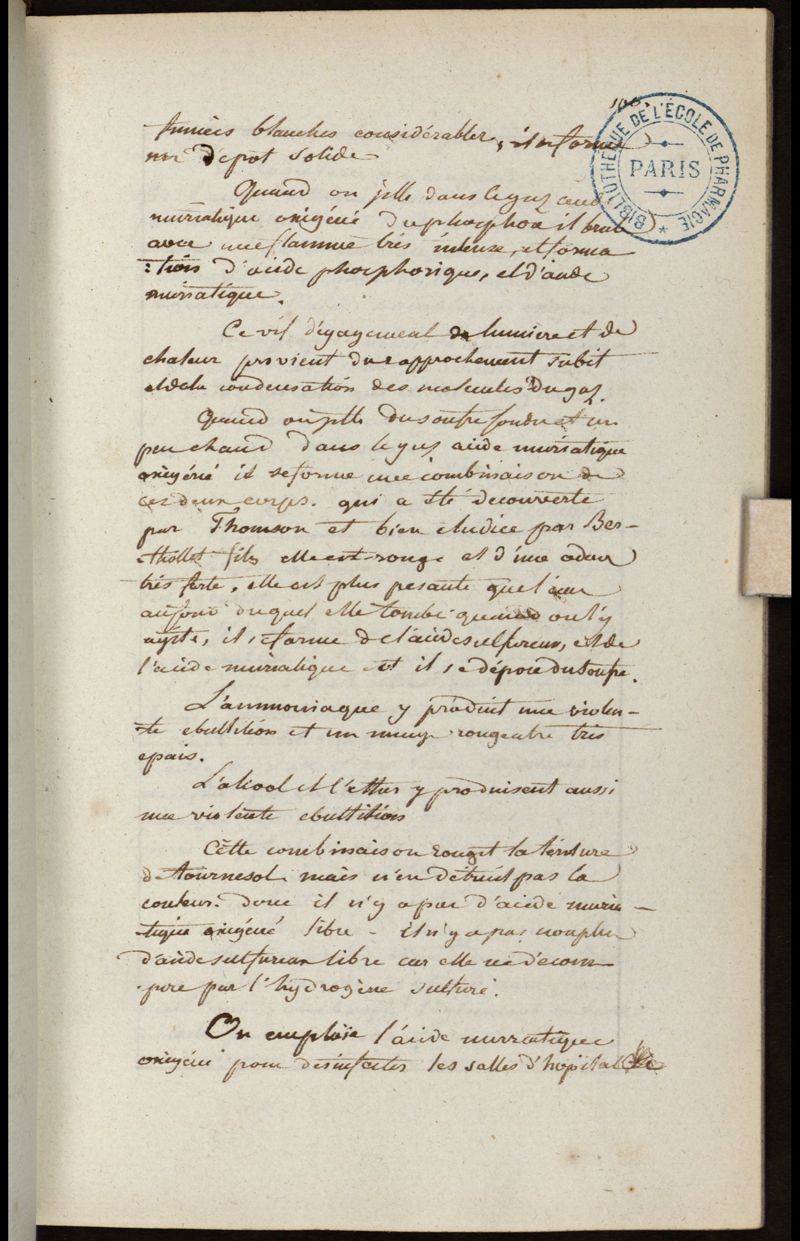 100.
BIBLIOTHÈQUE DE L'ÉCOLE DE PHARMACIE
PARIS
fumées blanches considérables, il se forme
un depot solide
Quand on jette dans le gaz acide
muriatique oxigéné du phosphore il brule
avec une flamme très intense, et forma
:tion d'acide phosphorique, et d'acide
muriatique.
Ce vif dégagement de lumiere et de
chaleur provient du rapprochement subit
et de la condensation des molecules du gaz.
Quand on jette du soufre fondu et un
peu chaud dans le gaz acide muriatique
oxigéné il se forme une combinaison de
ces deux corps. qui a été decouverte
par Thomson et bien etudiée par Ber-
-thollet fils elle est rouge et d'une odeur
très forte, elle est plus pesante que l'eau
au fond duquel elle tombe quand on l'y
ajoute, il se forme de l'acide sulfureux, et de
l'acide muriatique et il se dépose du soufre.
L'ammoniaque y produit une violen-
-te ebullition et un nuage rougeatre très
epais.
L'alcool et l'ether y produisent aussi
une violente ebullition
Cette combinaison rougit la teinture
de tournesol mais n'en détruit pas la
couleur. donc il n'y a pas d'acide muria-
-tique oxigéné libre - il n'y a pas non plus
d'acide sulfureux libre car elle ne décom-
-pose pas l'hydrogène sulfuré.
On emploie l'acide muriatique
oxigéné pour desinfecter les salles d'hopital